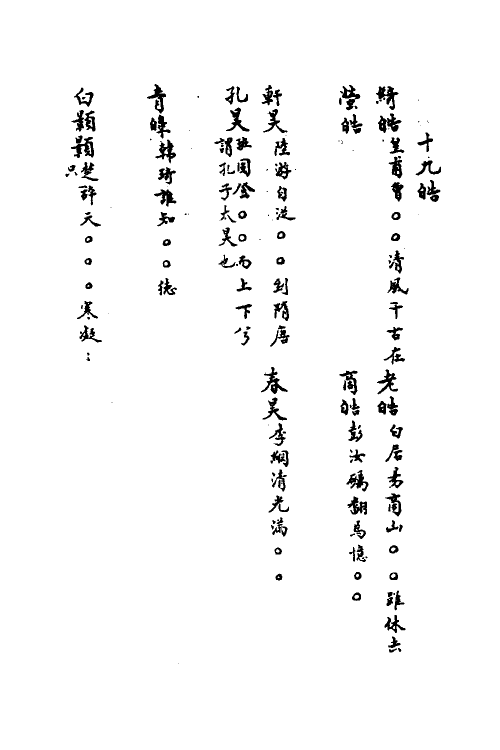 十九皓
綺皓皇甫曾○○清風千古在 老皓白居易商山○○雖休去
螢皓 商皓彭汝礪翻烏憶○○
軒昊陸游自從○○到隋唐 春昊李綱清光滿○○
孔昊班固登○○而上下兮
謂孔子太昊也
青皞韓琦誰知○○德
白顥顥楚辭天○○○寒凝:
只